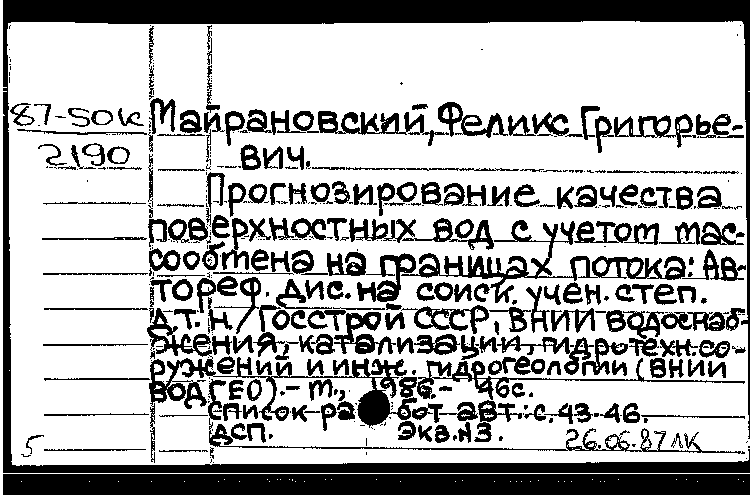 87-50к Майрановский, Феликс Григорье-
2190 вич.
Прогнозирование качества
поверхностных вод с учетом мас-
сообмена на границах потока: Ав-
тореф. дис. на соиск. учен. степ.
д.т.н./Госстрой СССР, ВНИИ водоснаб-
жения, катализации, гидротехн. со-
ружений и инж. гидрогеологии (ВНИИ
ВОДГЕО).- М., 1986.- 46с.
Список работ авт.: с. 43-46.
ДСП. Экз.N3. 26.06.87 ЛК
5